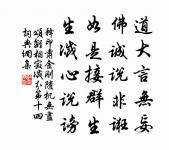 道大言無妄
佛誠說非誑
如是接群生
生滅心說謗
釋印肅金剛隨機無盡
頌離相寂滅分第十四
詞典網集